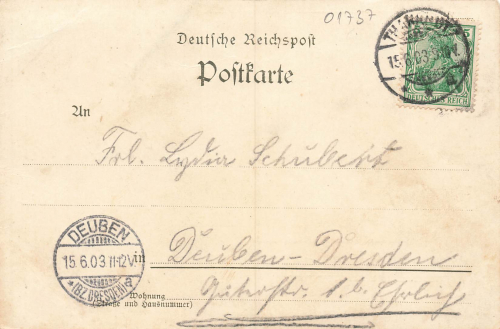 01737
THARANDT
15.6.03. V.
5
DEUTSCHES REICH
Deutsche Reichspost
Postkarte
An
Frl. Lydia Schubert
DEUBEN
15.6.03 11-12V
* (BZ. DRESDEN) a
in Deuben-Dresden
Wohnung
(Straße und Hausnummer)
b. Ehrlich